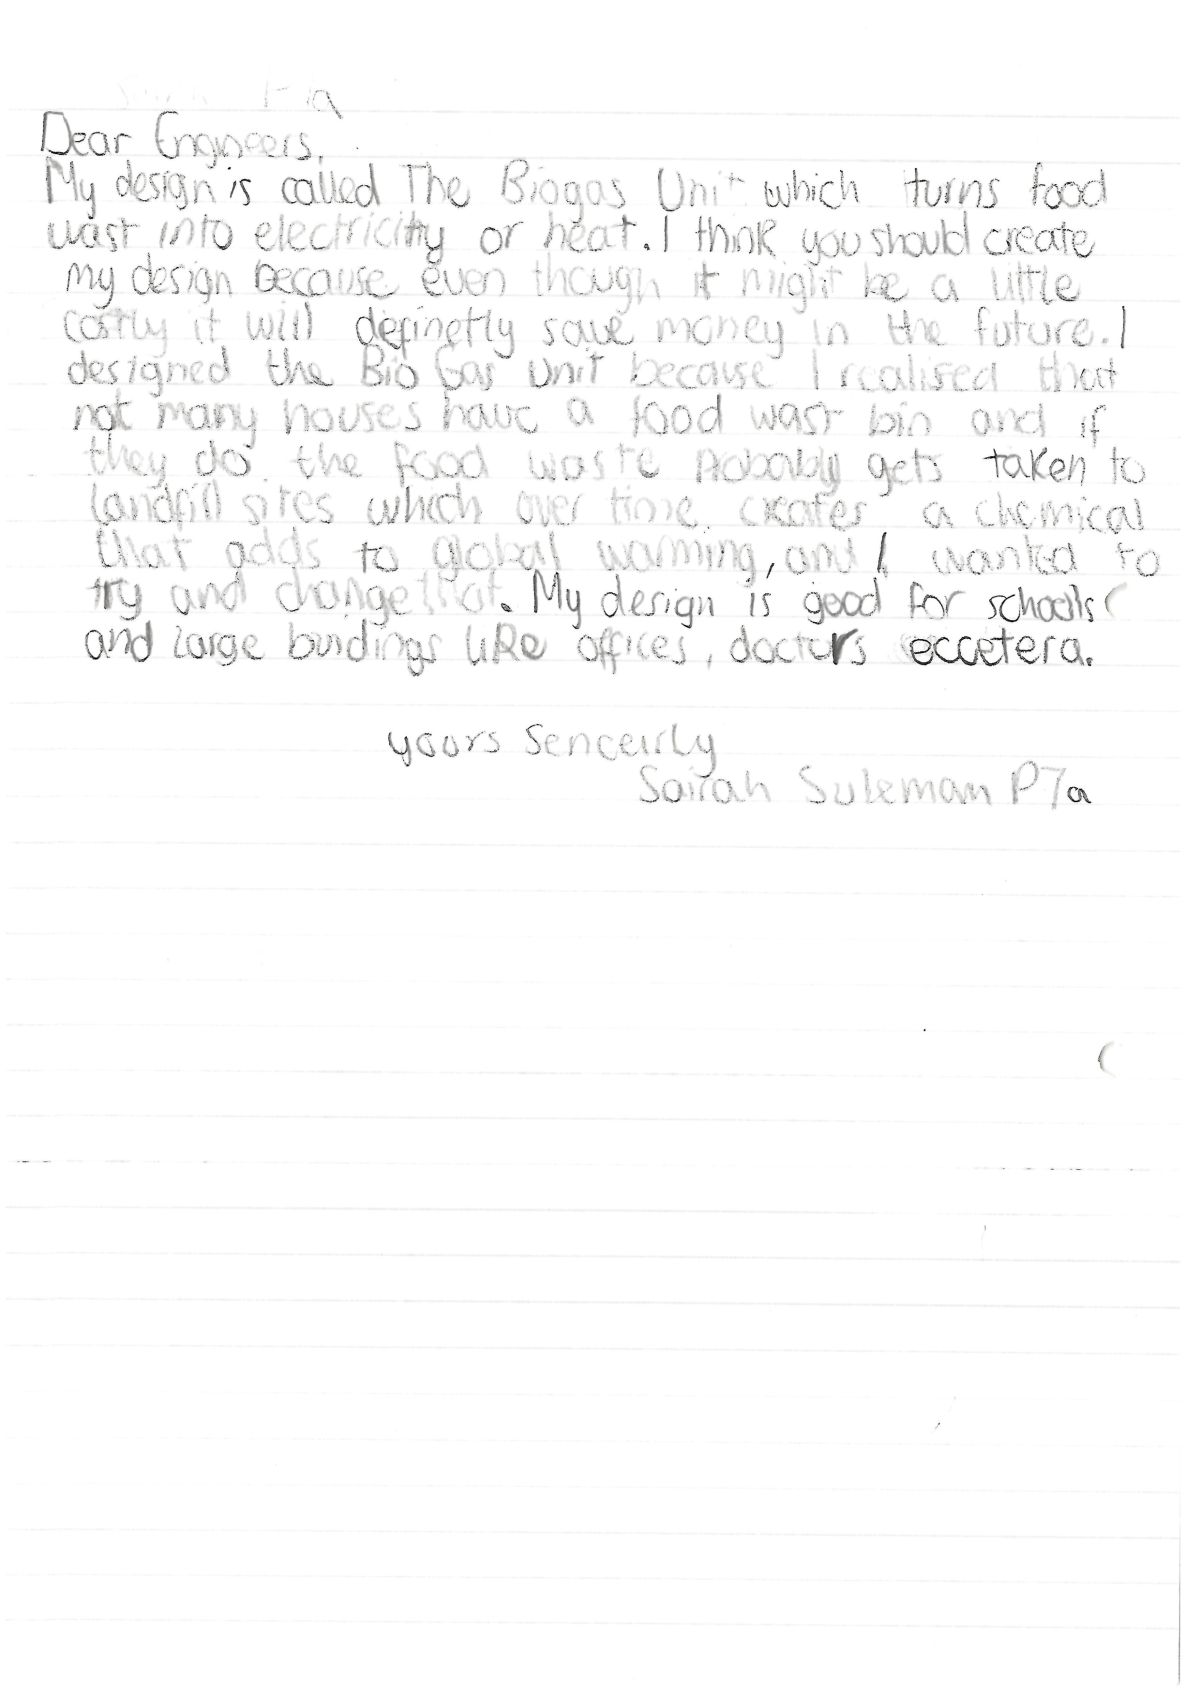 Dear Engineers,
My design is called The Biogas Unit which turns food
wast into electricity or heat. I think you should create
my design because even though it might be a little
costly it will definetly save money in the future. I
designed the Bio Gas Unit because I realised that
not many houses have a food wast bin and if
they do the food waste probably gets taken to
landfill sites which over time creates a chemical
that adds to global warming, and I wanted to
try and change that. My design is good for schools
and large buildings like offices, doctors eccetera.
yours Senceirly
Sairah Suleman P7a